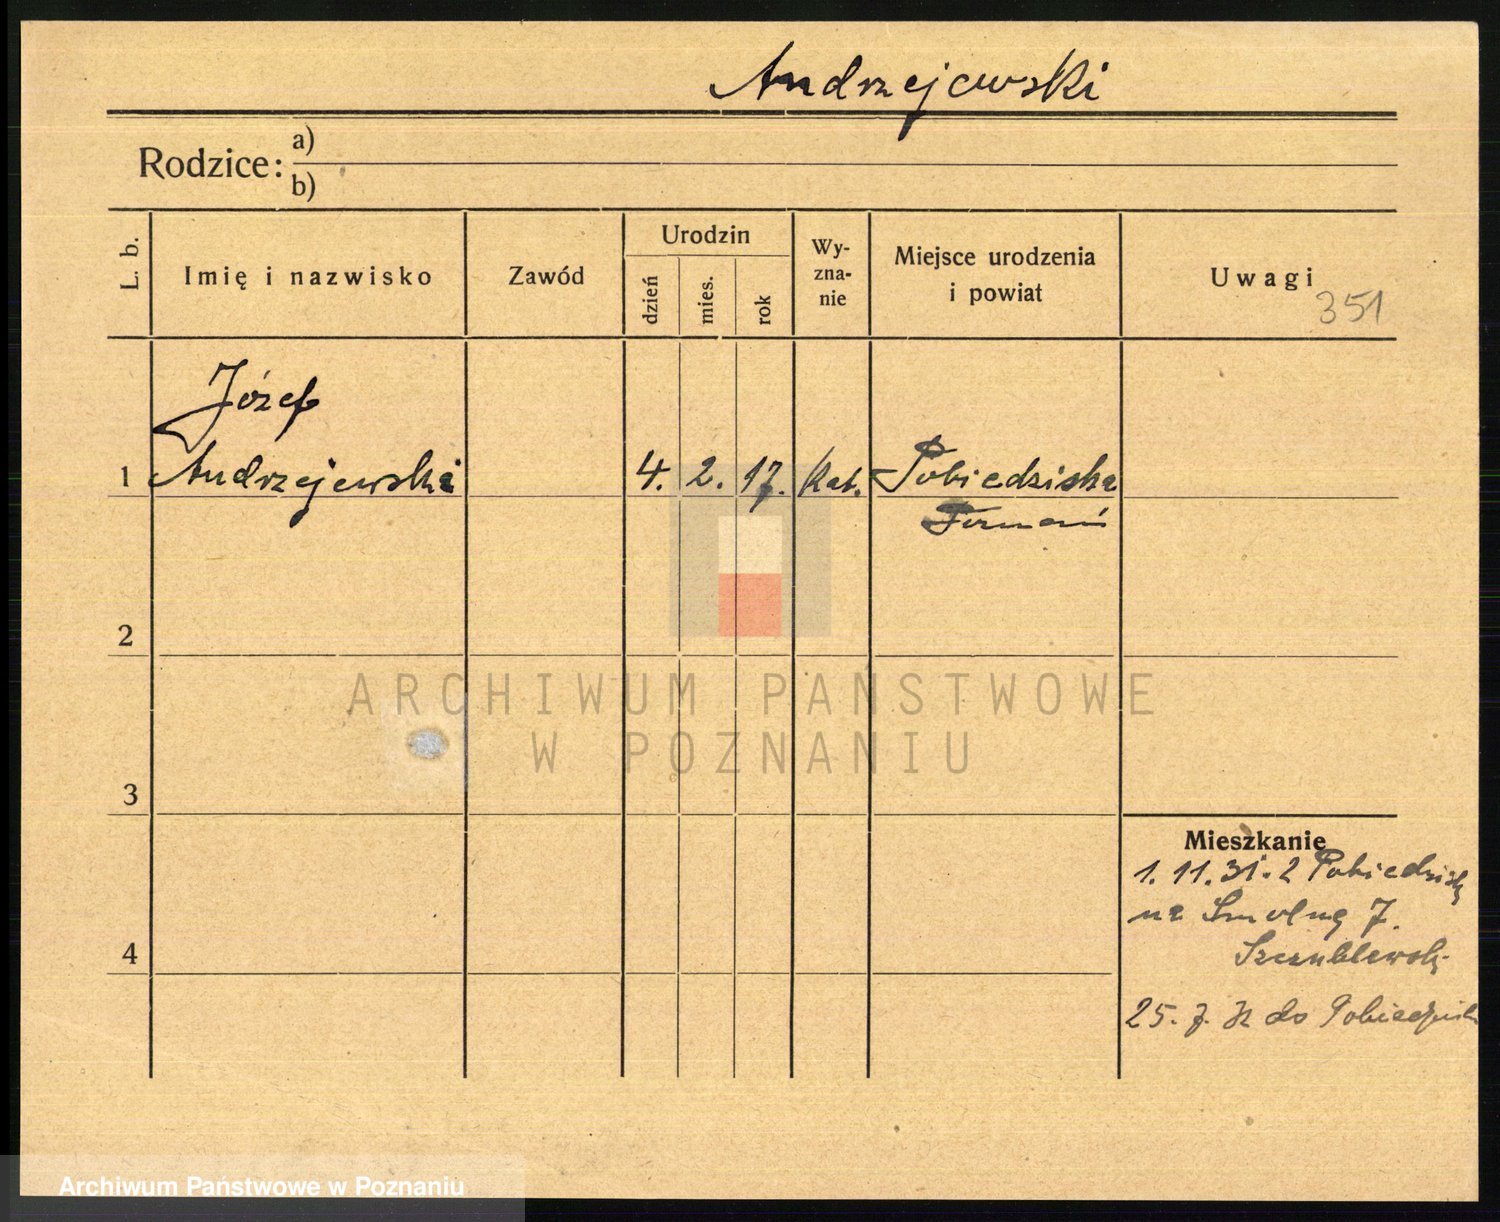 Andrzejewski
Rodzice: a)
b)
L. b.
Imię i nazwisko
Zawód
Urodzin
dzień
mies.
rok
Wy-
zna-
nie
Miejsce urodzenia
i powiat
Uwagi
351
Józef
1 Andrzejewski 4. 2. 17. Kat. Pobiedziska
Poznań
2
ARCHIWUM PAŃSTWOWE
W POZNANIU
3
Mieszkanie
1. 11. 31. z Pobiedzisk
na Smolną 7.
4
25. 7. 32 do Pobiedzisk
Archiwum Państwowe w Poznaniu